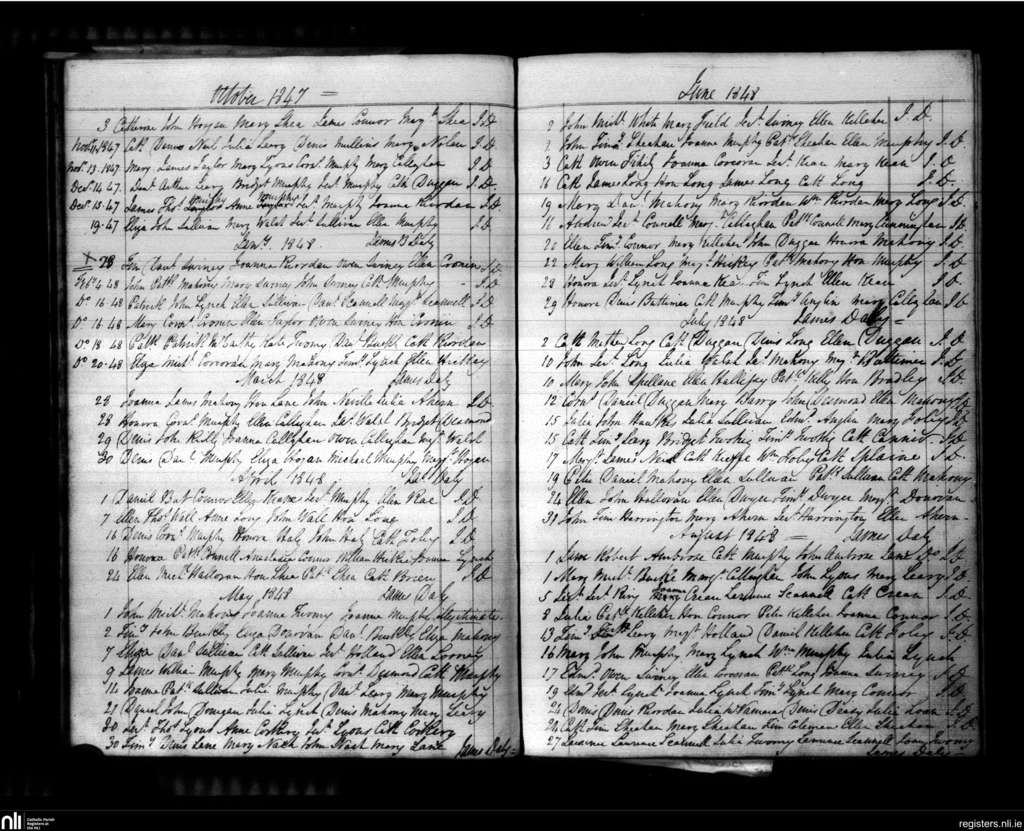 October 1847 =
3 Catherine John Hogan Mary Shea James Connor Marg.t Shea J.D.
Nov.r 11, 1847 Cath Denis Neil Julia Leary Denis Mullins Mary Nolan J.D.
Nov.r 13. 1847 Mary James Taylor Mary Lyons Corn.s Murphy Mary Callaghan J D
Dec.r 14. 47. Dan.l Arthur Leary Bridget Murphy Jer.h Murphy Cath Duggan J.D.
Dec.r 15. 47 James Tho.s Murphy Anne Murphy Joanna Riordan J.D.
19. 47 Eliza John Sullivan Mary Walsh Jer.h Sullivan Ellen Murphy J.D.
Jan.y 1848 James Daly
28 Tim Dan.l Swiney Joanna Riordan Owen Swiney Ellen Cronin J.D.
Feb.y 4. 48 John Path Mahony Mary Swiney John Swiney Cath Murphy J.D.
D.o 16. 48 Patrick John Lynch Ellen Sullivan Dan.l Scannell Scannell J.D.
D.o 16. 48 Mary Corn.s Cronin Ellen Taylor Owen Swiney Hon Cronin J.D.
D.o 18 48 Path Patrick McCarthy Kate Twomy Dan.l Cath Riordan
D.o 20. 48 Eliza Mich.l Corcoran Mary Mahony Tim.y Lynch Ellen Hickey
March 1848 James Daly
28 Joanna James Mahony Hon Lane John Neville Julia Ahern J.D.
28 Honora Corn.s Murphy Ellen Callaghan Jer.h Walsh Bridget Desmond
29 Denis John Kelly Joanna Callaghan Owen Callaghan Mgt Walsh
30 Denis Dan.l Murphy Eliza Hogan Michael Murphy Marg.t Hogan
April 1848 Ja.s Daly
1 Daniel Bat Connor Elly Jer.h Murphy Ellen J.D.
7 Ellen Tho.s Wall Anne Long John Wall Hon Long J.D.
16 Denis Corn.s Murphy Honora Haly John Haly Cath Foley J.D.
16 Honora Path Connell Anastasia Connor William Hickie Joanna Lynch
24 Ellen Mich.l Halloran Hon Shea Pat.k Shea Cath Brien J.D.
May 1848 James Daly
1 John Mich.l Mahony Joanna Twomy Joanna Murphy Illegitimate
2 Tim.y John Buckley Eliza Donovan Dan.l Buckley Eliza Mahony
7 Eliza Dan.l Sullivan Cth Sullivan Jer.h Holland Ellen Looney
9 James Willm Murphy Mary Murphy Corn.s Desmond Cath Murphy
14 Joanna Path Sullivan Julia Murphy Dan.l Leary Mary Murphy
21 Daniel John Donegan Julia Lynch Denis Mahony Mary Leary
30 Jer.h Tho.s Lyons Anne Corkery Jer.h Lyons Cath Corkery
30 Tim.y Denis Lane Mary Nash John Nash Mary Lane James Daly =
June 1848
2 John Mich.l White Mary Field Jer.h Swiney Ellen Kelleher J.D.
John Tim.y Sheehan Joanna Murphy Pat.k Sheehan Ellen Murphy J.D.
3 Cath Owen Joanna Corcoran Jer.h Kean Mary Kean J.D.
16 Cath James Long Hon Long James Long Cath Long J.D.
19 Mary Dan.l Mahony Mary Riordan Wm Riordan Mary Long J.D.
11 Andrew Jer.h Connell Marg.t Callaghan Path Connell Mary Cunningham J.D.
20 Ellen Tim.y Connor Mary Kelleher John Duggan Honora Mahony J.D.
22 Mary William Long Mary Hickey Path Mahony Hon Murphy J.D.
28 Honora Jer.h Lynch Joanna Kean Tim Lynch Ellen Kean J.D.
29 Honora Denis Buttimer Cath Murphy Tim.y Anglin Mary J.D.
July 1848 James Daly =
2 Cath Mathew Long Cath Duggan Denis Long Ellen Duggan J.D.
10 John Jer.h Long Julia Walsh Jer.h Mahony Mgt Buttimer J.D.
10 Mary John Spellane Ellen Hallissy Pat.k Kelly Hon Bradley J.D.
12 Corn.s Daniel Duggan Mary Barry John Desmond Ellen Mahony J.D.
15 Julia John Hawkes Julia Sullivan Edm.d Anglin Mary Foley J.D.
15 Cath Tim.y Leary Bridget Twohig Tim.y Twohig Cath J.D.
17 Mary James Neill Cath Keeffe Wm Foley Cath Splaine J.D.
19 Ellen Daniel Mahony Ellen Sullivan Pat.k Sullivan Cath Mahony
24 Ellen John Halloran Ellen Dwyer Tim.y Dwyer Marg.t Donovan
31 John Tim Harrington Mary Ahern Jer.h Harrington Ellen Ahern
August 1848 = James Daly
1 Jane Robert Ambrose Cath Murphy John Ambrose Jane D.o J.D.
1 Mary Mich.l Burke Marg.t Callaghan John Lyons Mary Leary J.D.
5 Jer.h Jer.h Ring Joanna Crean Laurence Scannell Cath Crean J.D.
8 Julia Pat.k Kelleher Hon Connor Peter Kelleher Joanna Connor J.D.
13 Tim.y Leary Mgt Holland Daniel Kelleher Cath Foley J.D.
16 Mary John Murphy Mary Lynch Wm Murphy Julia Lynch
17 Edm.d Owen Swiney Ellen Corcoran Path Long Joanna Swiney J.D.
19 Jer.h Lynch Joanna Lynch Tim.y Lynch Mary Connor J.D.
24 Denis Denis Riordan Julia McNamara Denis Julia J.D.
26 Cath Tim Sheehan Mary Sheehan Tim Coleman Ellen Sheehan J.D.
27 Laurence Laurence Scannell Julia Twomy Laurence Scannell Twomy
James Daly =
nli
Catholic Parish
Registers at
the NLI
registers.nli.ie